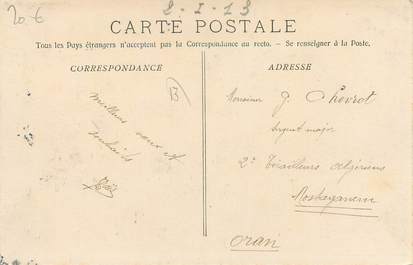 20-6
8-1-13
CARTE POSTALE
Tous les Pays étrangers n'acceptent pas la Correspondance au recto. — Se renseigner à la Poste.
CORRESPONDANCE
ADRESSE
B
Meilleurs vœux et
souhaits
Monsieur J. Chevrot
sergent major
2e Tirailleurs algériens
Mostaganem
Oran